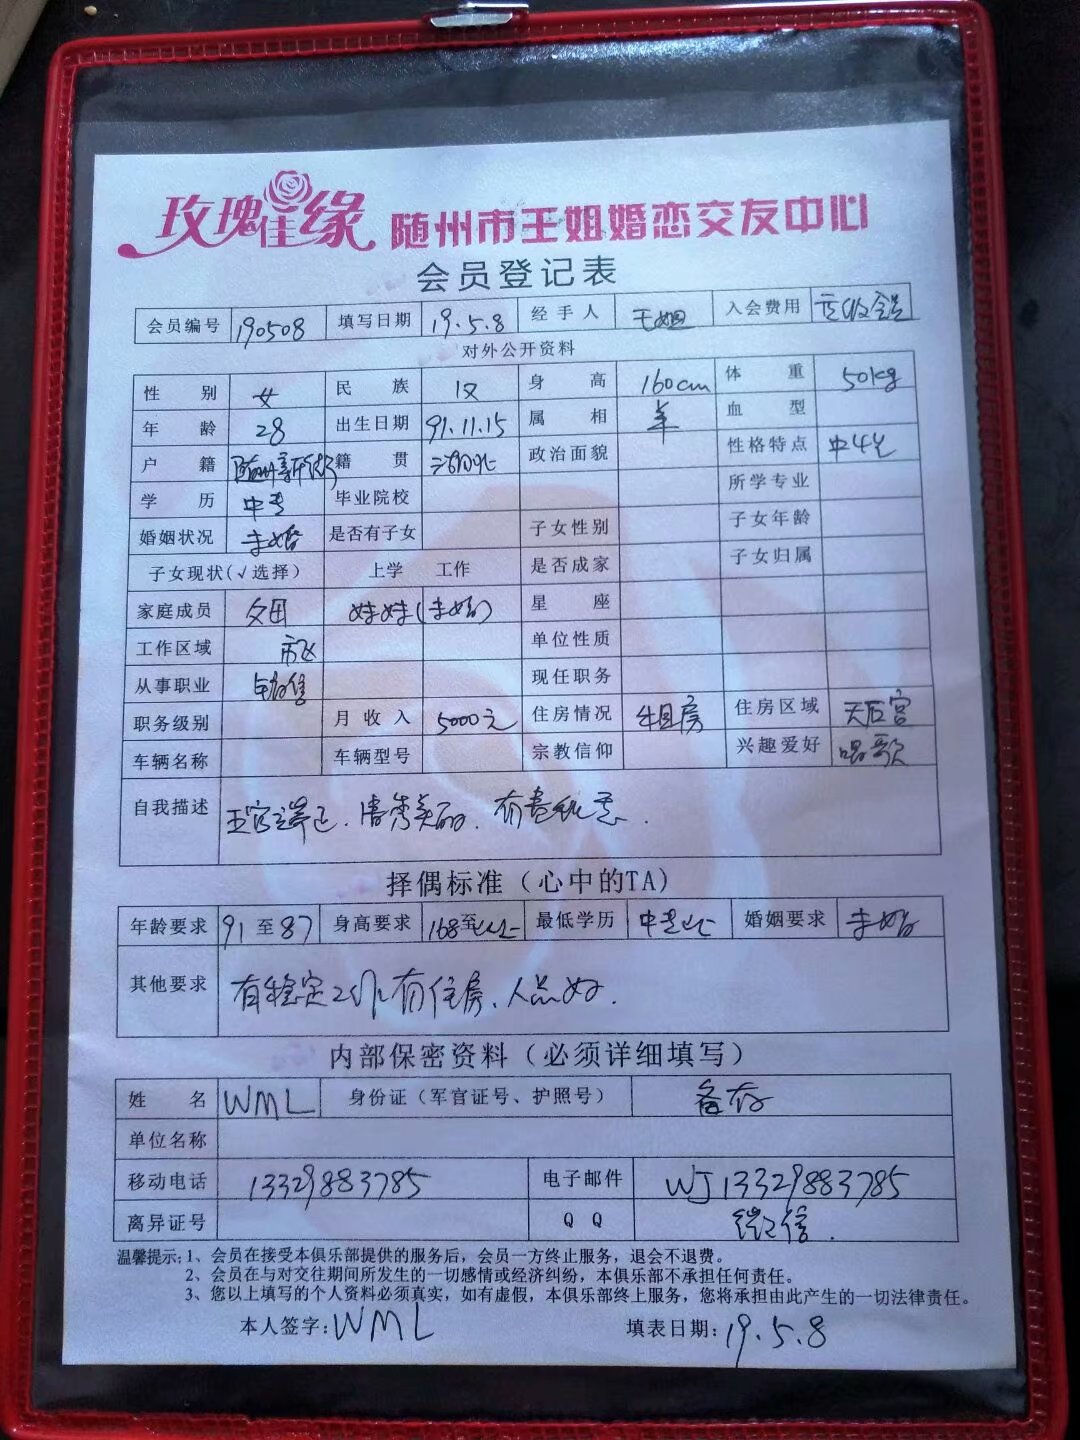 玫瑰佳缘 随州市王姐婚恋交友中心
会员登记表
会员编号 190508 填写日期 19.5.8 经手人 王姐 入会费用
对外公开资料
性别 女 民族 汉 身高 160cm 体重 50kg
年龄 28 出生日期 91.11.15 属相 羊 血型
户籍 籍贯 湖北 政治面貌 性格特点
学历 中专 毕业院校 所学专业
婚姻状况 未婚 是否有子女 子女性别 子女年龄
子女现状(√选择) 上学 工作 是否成家 子女归属
家庭成员 父母 妹妹(未婚) 星座
工作区域 市区 单位性质
从事职业 销售 现任职务
职务级别 月收入 5000元 住房情况 租房 住房区域 天后宫
车辆名称 车辆型号 宗教信仰 兴趣爱好 唱歌
自我描述 五官端正.清秀美丽.
择偶标准(心中的TA)
年龄要求 91至87 身高要求 168至以上 最低学历 中专以上 婚姻要求 未婚
其他要求 有稳定工作有住房、人品好.
内部保密资料(必须详细填写)
姓名 WML 身份证(军官证号、护照号) 备存
单位名称
移动电话 13329883785 电子邮件 WJ13329883785
离异证号 QQ 微信.
温馨提示:1、会员在接受本俱乐部提供的服务后,会员一方终止服务,退会不退费。
2、会员在与对交往期间所发生的一切感情或经济纠纷,本俱乐部不承担任何责任。
3、您以上填写的个人资料必须真实,如有虚假,本俱乐部终上服务,您将承担由此产生的一切法律责任。
本人签字:WML 填表日期:19.5.8